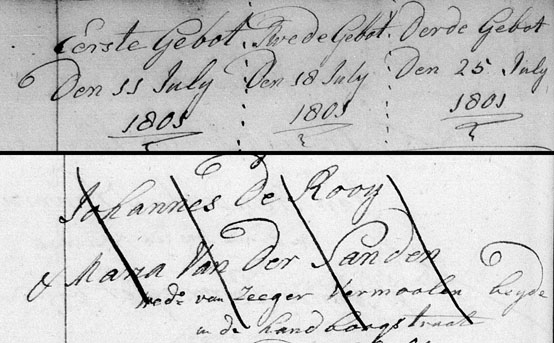 Eerste Gebot. Twede Gebot. Derde Gebot
Den 11 July Den 18 July Den 25 July
1801 1801 1801
Johannes de Rooy
& Maria Van Der Sanden
wede van Zeeger Vermoolen beyde
in de handboogstraat